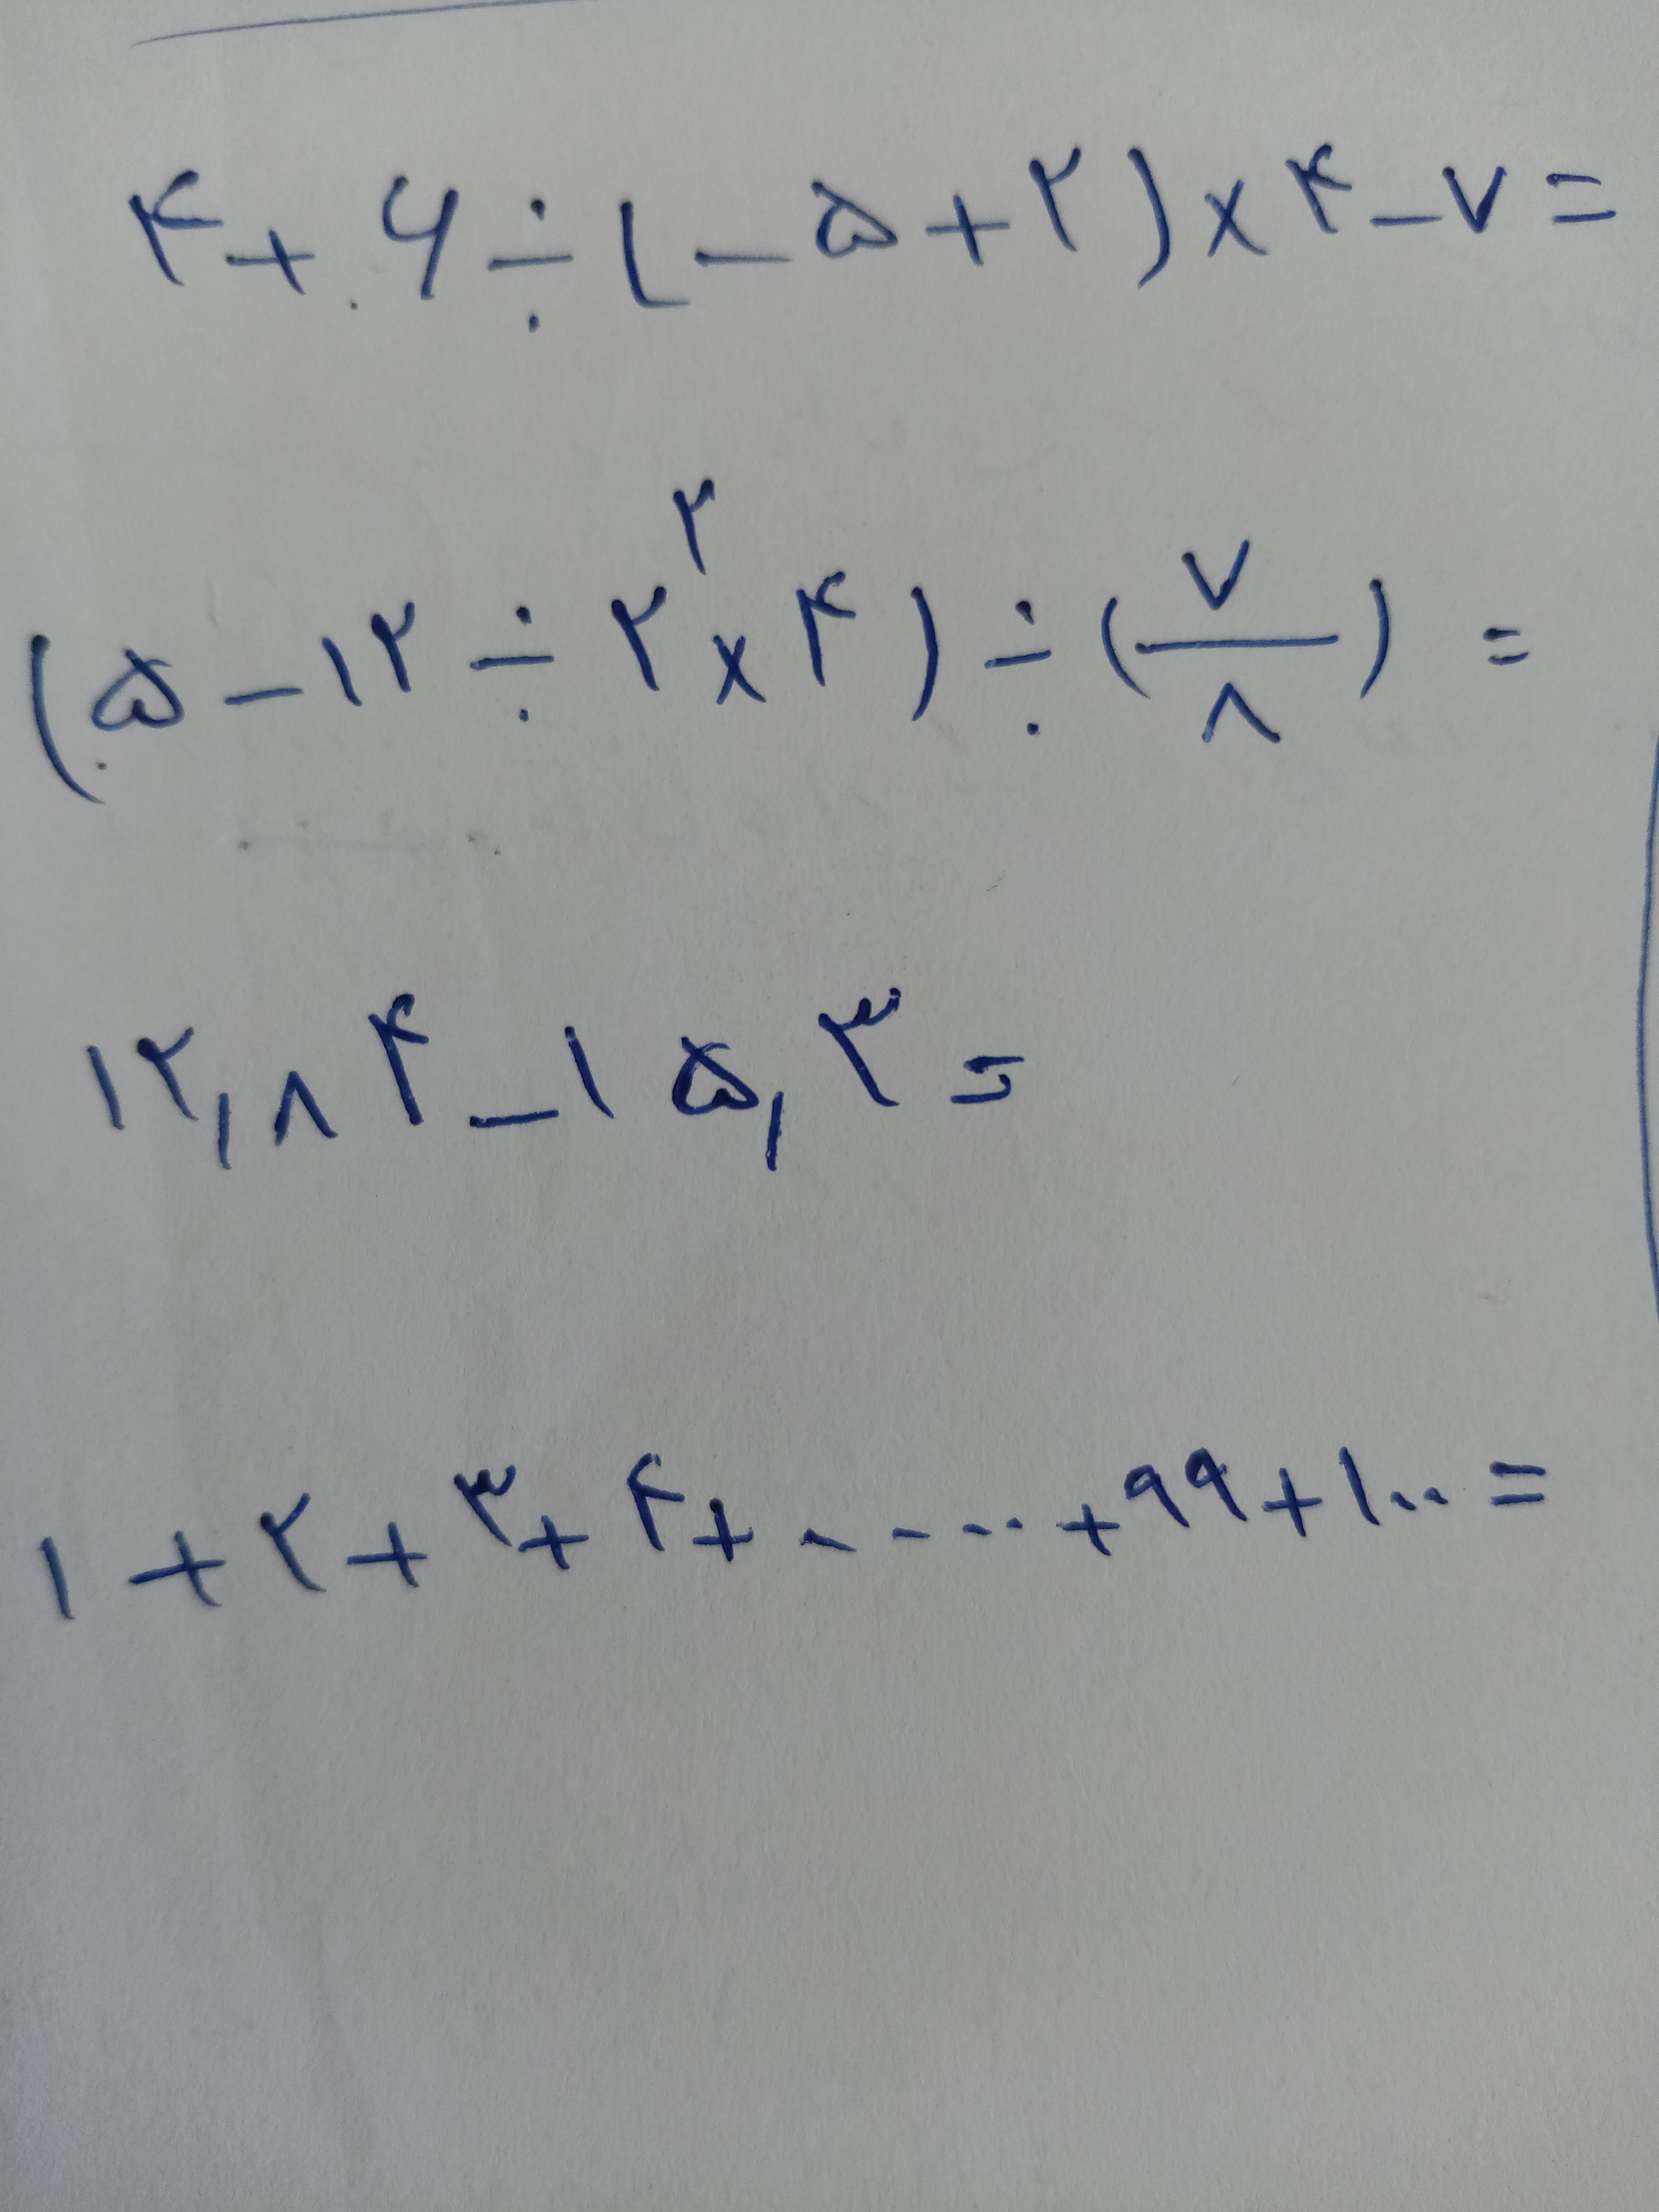 ۴+۶÷(-۵+۲)×۴-۷=
(۵-۱۲÷۲^۲×۴)÷(۷/۸)=
۱۲,۸۴-۱۵,۳=
۱+۲+۳+۴+.....+۹۹+۱۰۰=